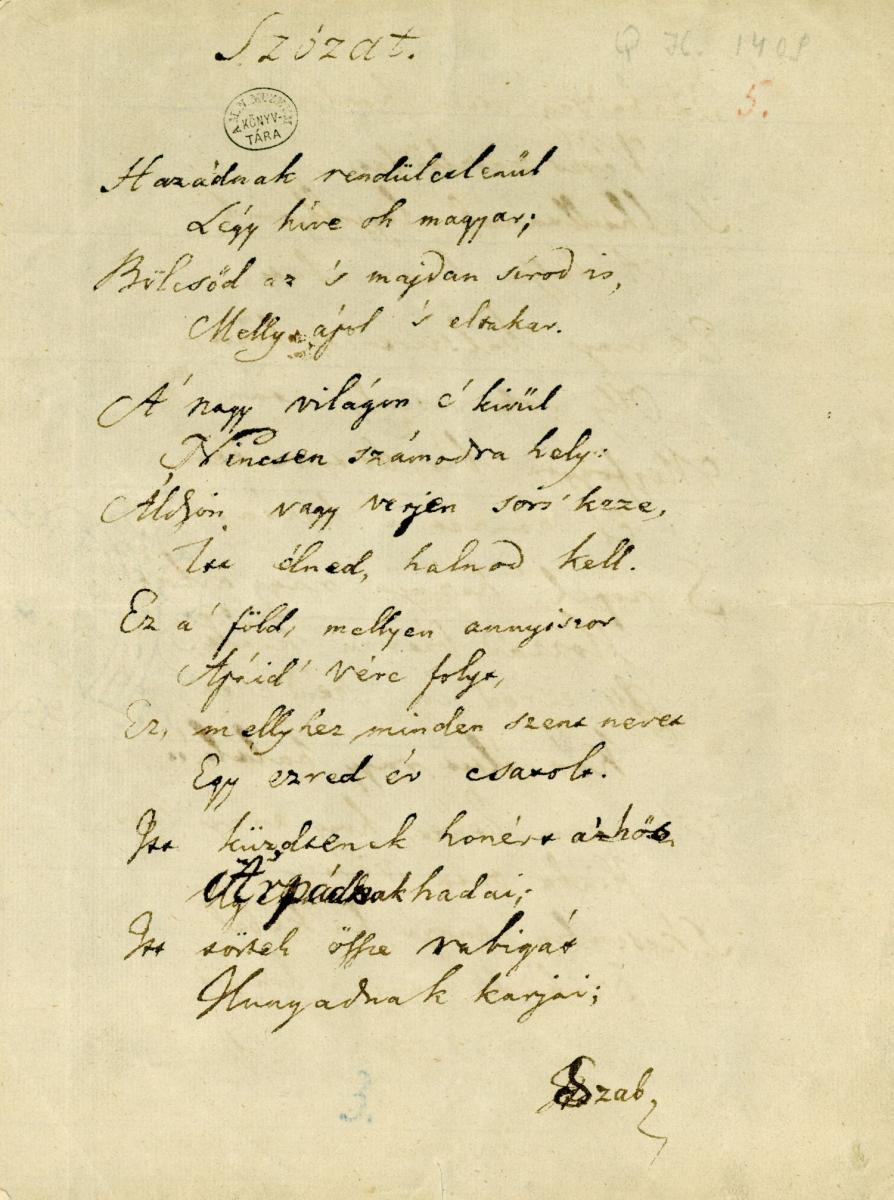 Szózat.
Q H. 1408
5.
A M. N. MUZEUM
KÖNYV-
TÁRA
Hazádnak rendületlenül
Légy híve oh magyar;
Bölcsőd az 's majdan sírod is,
Melly ápol 's eltakar.
A' nagy világon é' kivül
Nincsen számodra hely:
Áldjon vagy verjen sors' keze,
Itt élned, halnod kell.
Ez a' föld, mellyen annyiszor
Apáid' vére folyt,
Ez, mellyhez minden szent nevet
Egy ezred év csatolt.
Itt küzdtenek honért a' hős
Árpádnak hadai;
Itt törtek össze rabigát
Hunyadnak karjai;
Szab